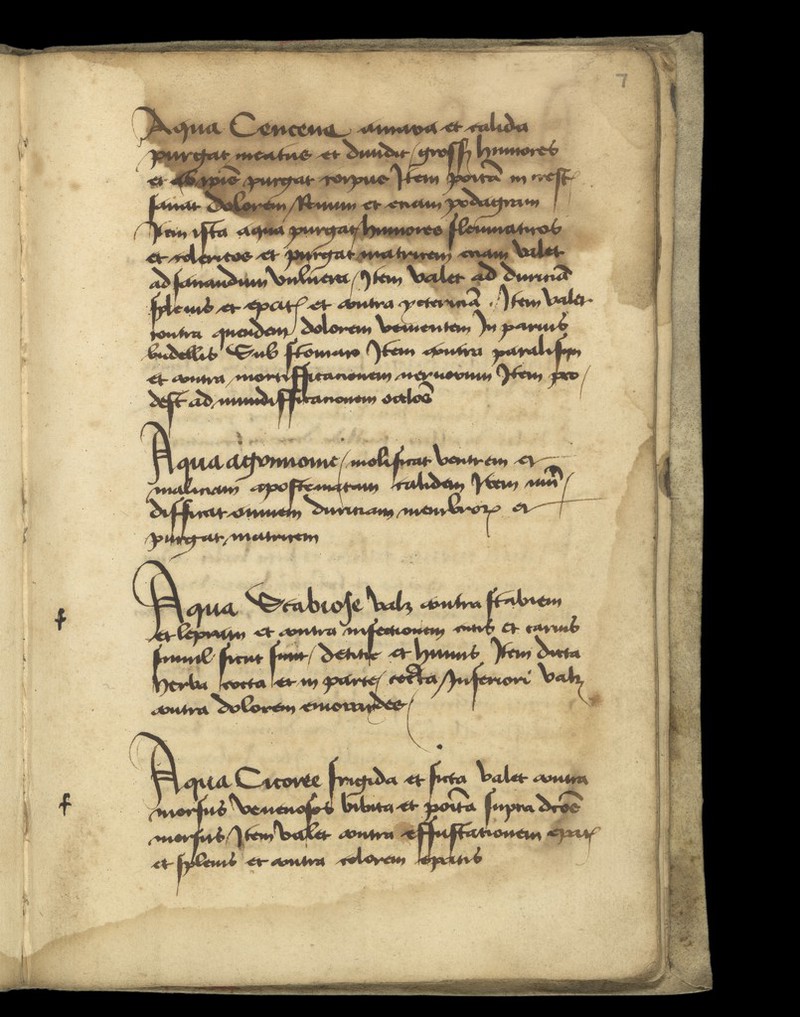 7
Aqua Cencene amara et calida
purgat meatus et diuidit grossos humores
et purgat corpus Item potata in
sanat dolorem Renum et eciam podagram
Item ista aqua purgat humores fleumaticos
et colericos et purgat matricem eciam valet
ad sanandum vulnera Item valet ad duriciā
splenis et epatis et contra ytericiā Item valet
contra quendem dolorem vementem In paruis
budellis Sub stomaco Item contra paralisym
et contra mortifficacionem neruorum Item pro
dest ad mundifficacionem
Aqua agrimonie molificat ventrem et
maliciam apostematum calidem Item mū
difficat omnem duriciam menbrorum et
purgat matricem
Aqua Scabiose valet contra scabiem
et lepram et contra infectionem cutis et carnis
simul sicut sunt et huius Item dicta
herba cocta et in parte cocta Inferiori valet
contra dolorem emorroides
f
Aqua Cicoree frigida et sicca valet contra
morsus venenosos bibita et potā supra dcōs
morsus Item valet contra epatis
et splenis et contra colorem epatis
f